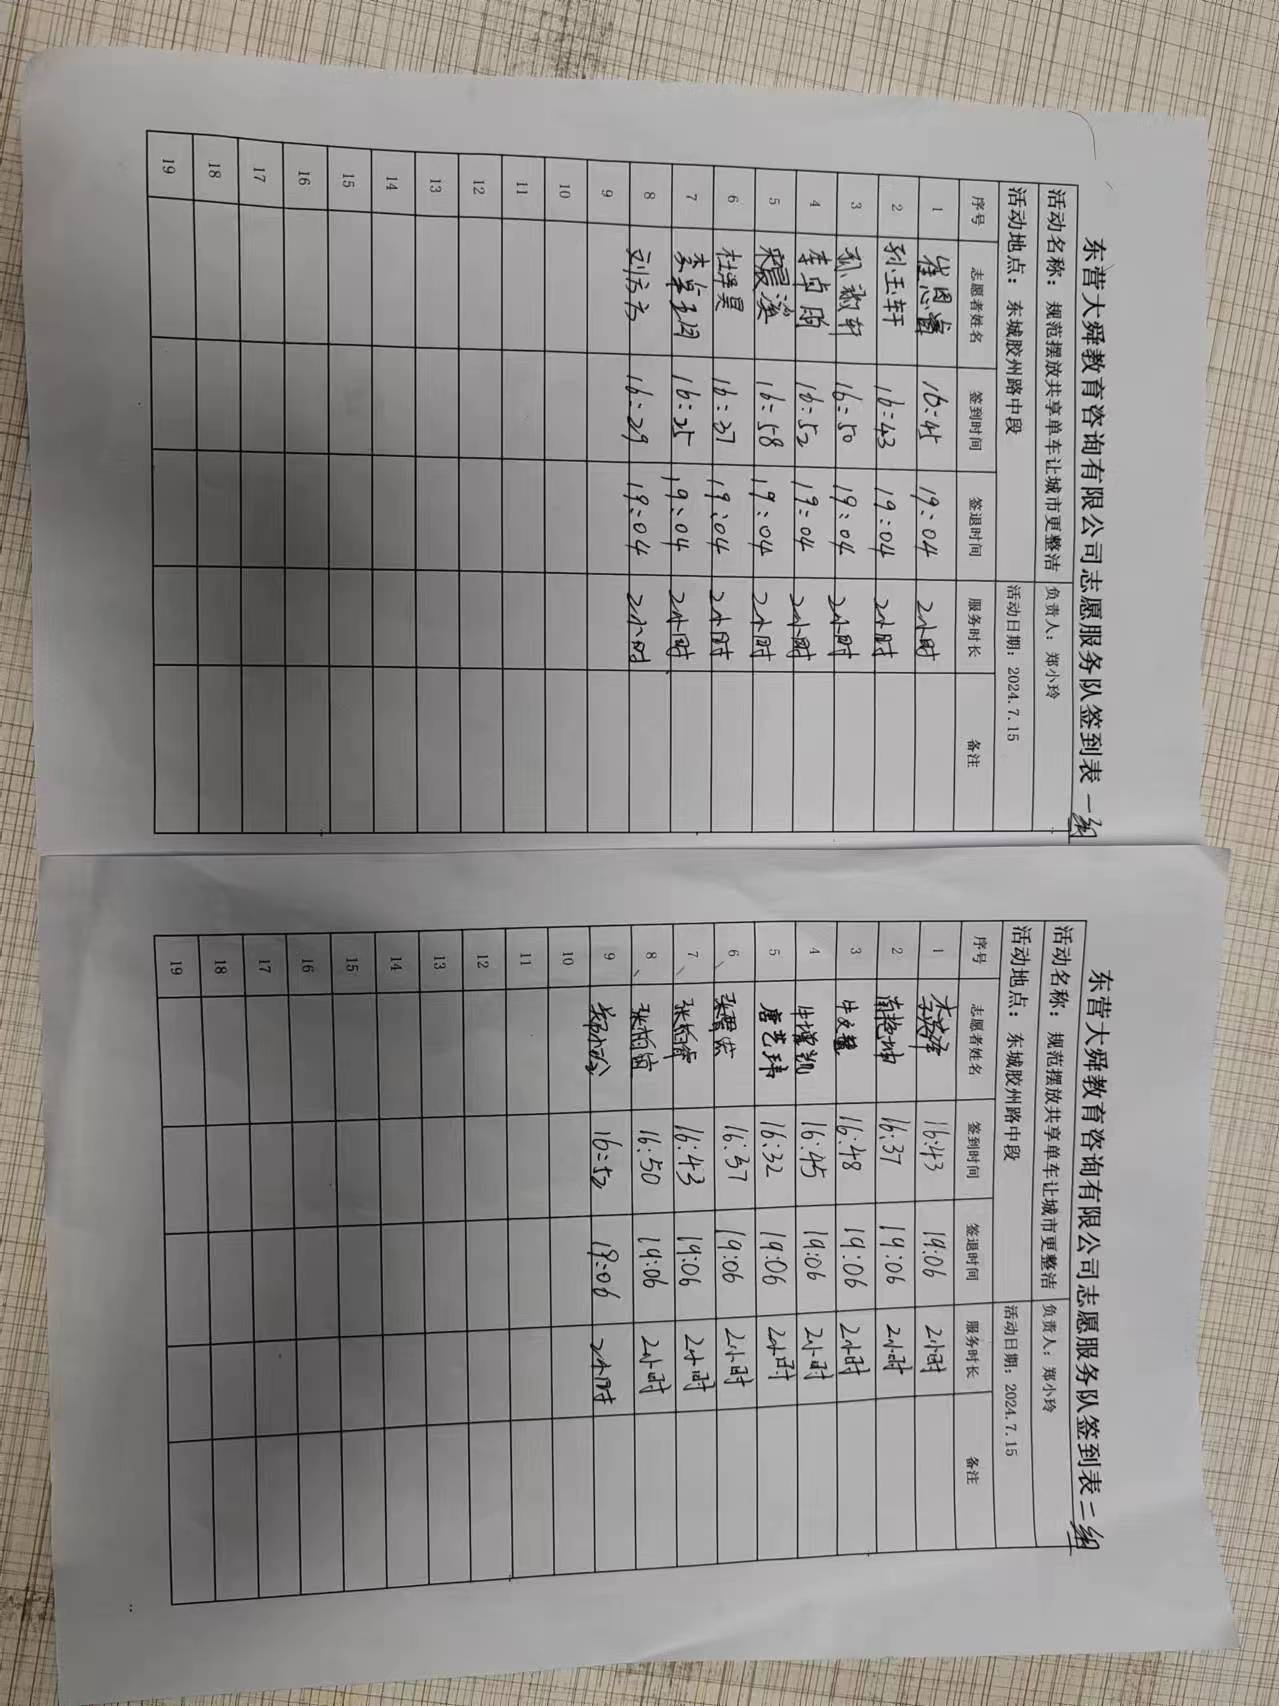 东营大舜教育咨询有限公司志愿服务队签到表 一组
活动名称：规范摆放共享单车让城市更整洁 负责人：郑小玲
活动地点：东城胶州路中段 活动日期：2024.7.15
序号 志愿者姓名 签到时间 签退时间 服务时长 备注
1 崔恩 16:45 19:04 2小时
2 孙玉轩 16:43 19:04 2小时
3 轩 16:50 19:04 2小时
4 李卓 16:52 19:04 2小时
5 晨溪 16:58 19:04 2小时
6 杜泽昊 16:37 19:04 2小时
7 16:25 19:04 2小时
8 刘方方 16:29 19:04 2小时
9
10
11
12
13
14
15
16
17
18
19
东营大舜教育咨询有限公司志愿服务队签到表 二组
活动名称：规范摆放共享单车让城市更整洁 负责人：郑小玲
活动地点：东城胶州路中段 活动日期：2024.7.15
序号 志愿者姓名 签到时间 签退时间 服务时长 备注
1 李 16:43 19:06 2小时
2 坤 16:37 19:06 2小时
3 牛文 16:48 19:06 2小时
4 牛增凯 16:45 19:06 2小时
5 唐艺玮 16:32 19:06 2小时
6 宏 16:37 19:06 2小时
7 张柏睿 16:43 19:06 2小时
8 张柏 16:50 19:06 2小时
9 郑小玲 16:52 19:06 2小时
10
11
12
13
14
15
16
17
18
19